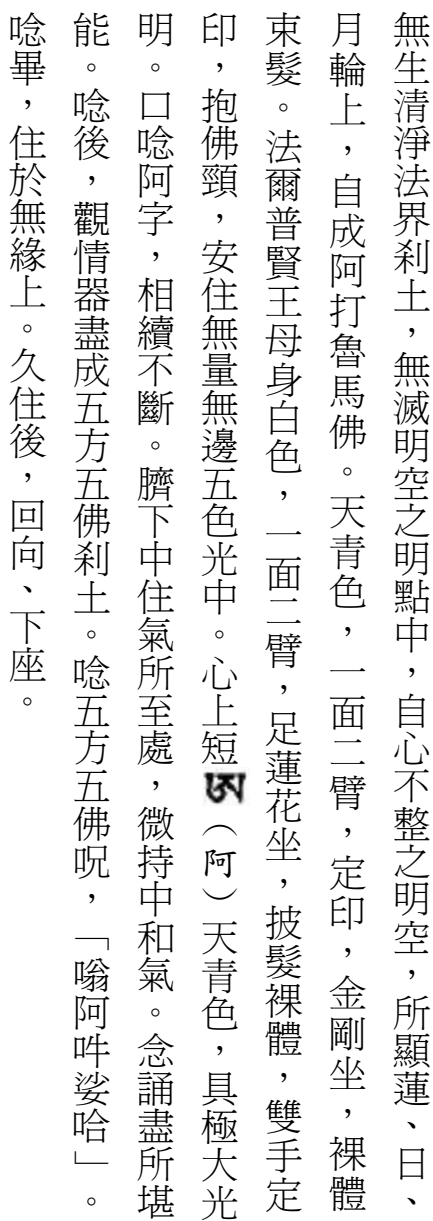 無生清淨法界剎土，無滅明空之明點中，自心不整之明空，所顯蓮、日、
月輪上，自成阿打魯馬佛。天青色，一面二臂，定印，金剛坐，裸體
束髮。法爾普賢王母身白色，一面二臂，足蓮花坐，披髮裸體，雙手定
印，抱佛頸，安住無量無邊五色光中。心上短ཨ（阿）天青色，具極大光
明。口唸阿字，相續不斷。臍下中住氣所至處，微持中和氣。念誦盡所堪
能。唸後，觀情器盡成五方五佛剎土。唸五方五佛呪，「嗡阿吽娑哈」。
唸畢，住於無緣上。久住後，回向、下座。